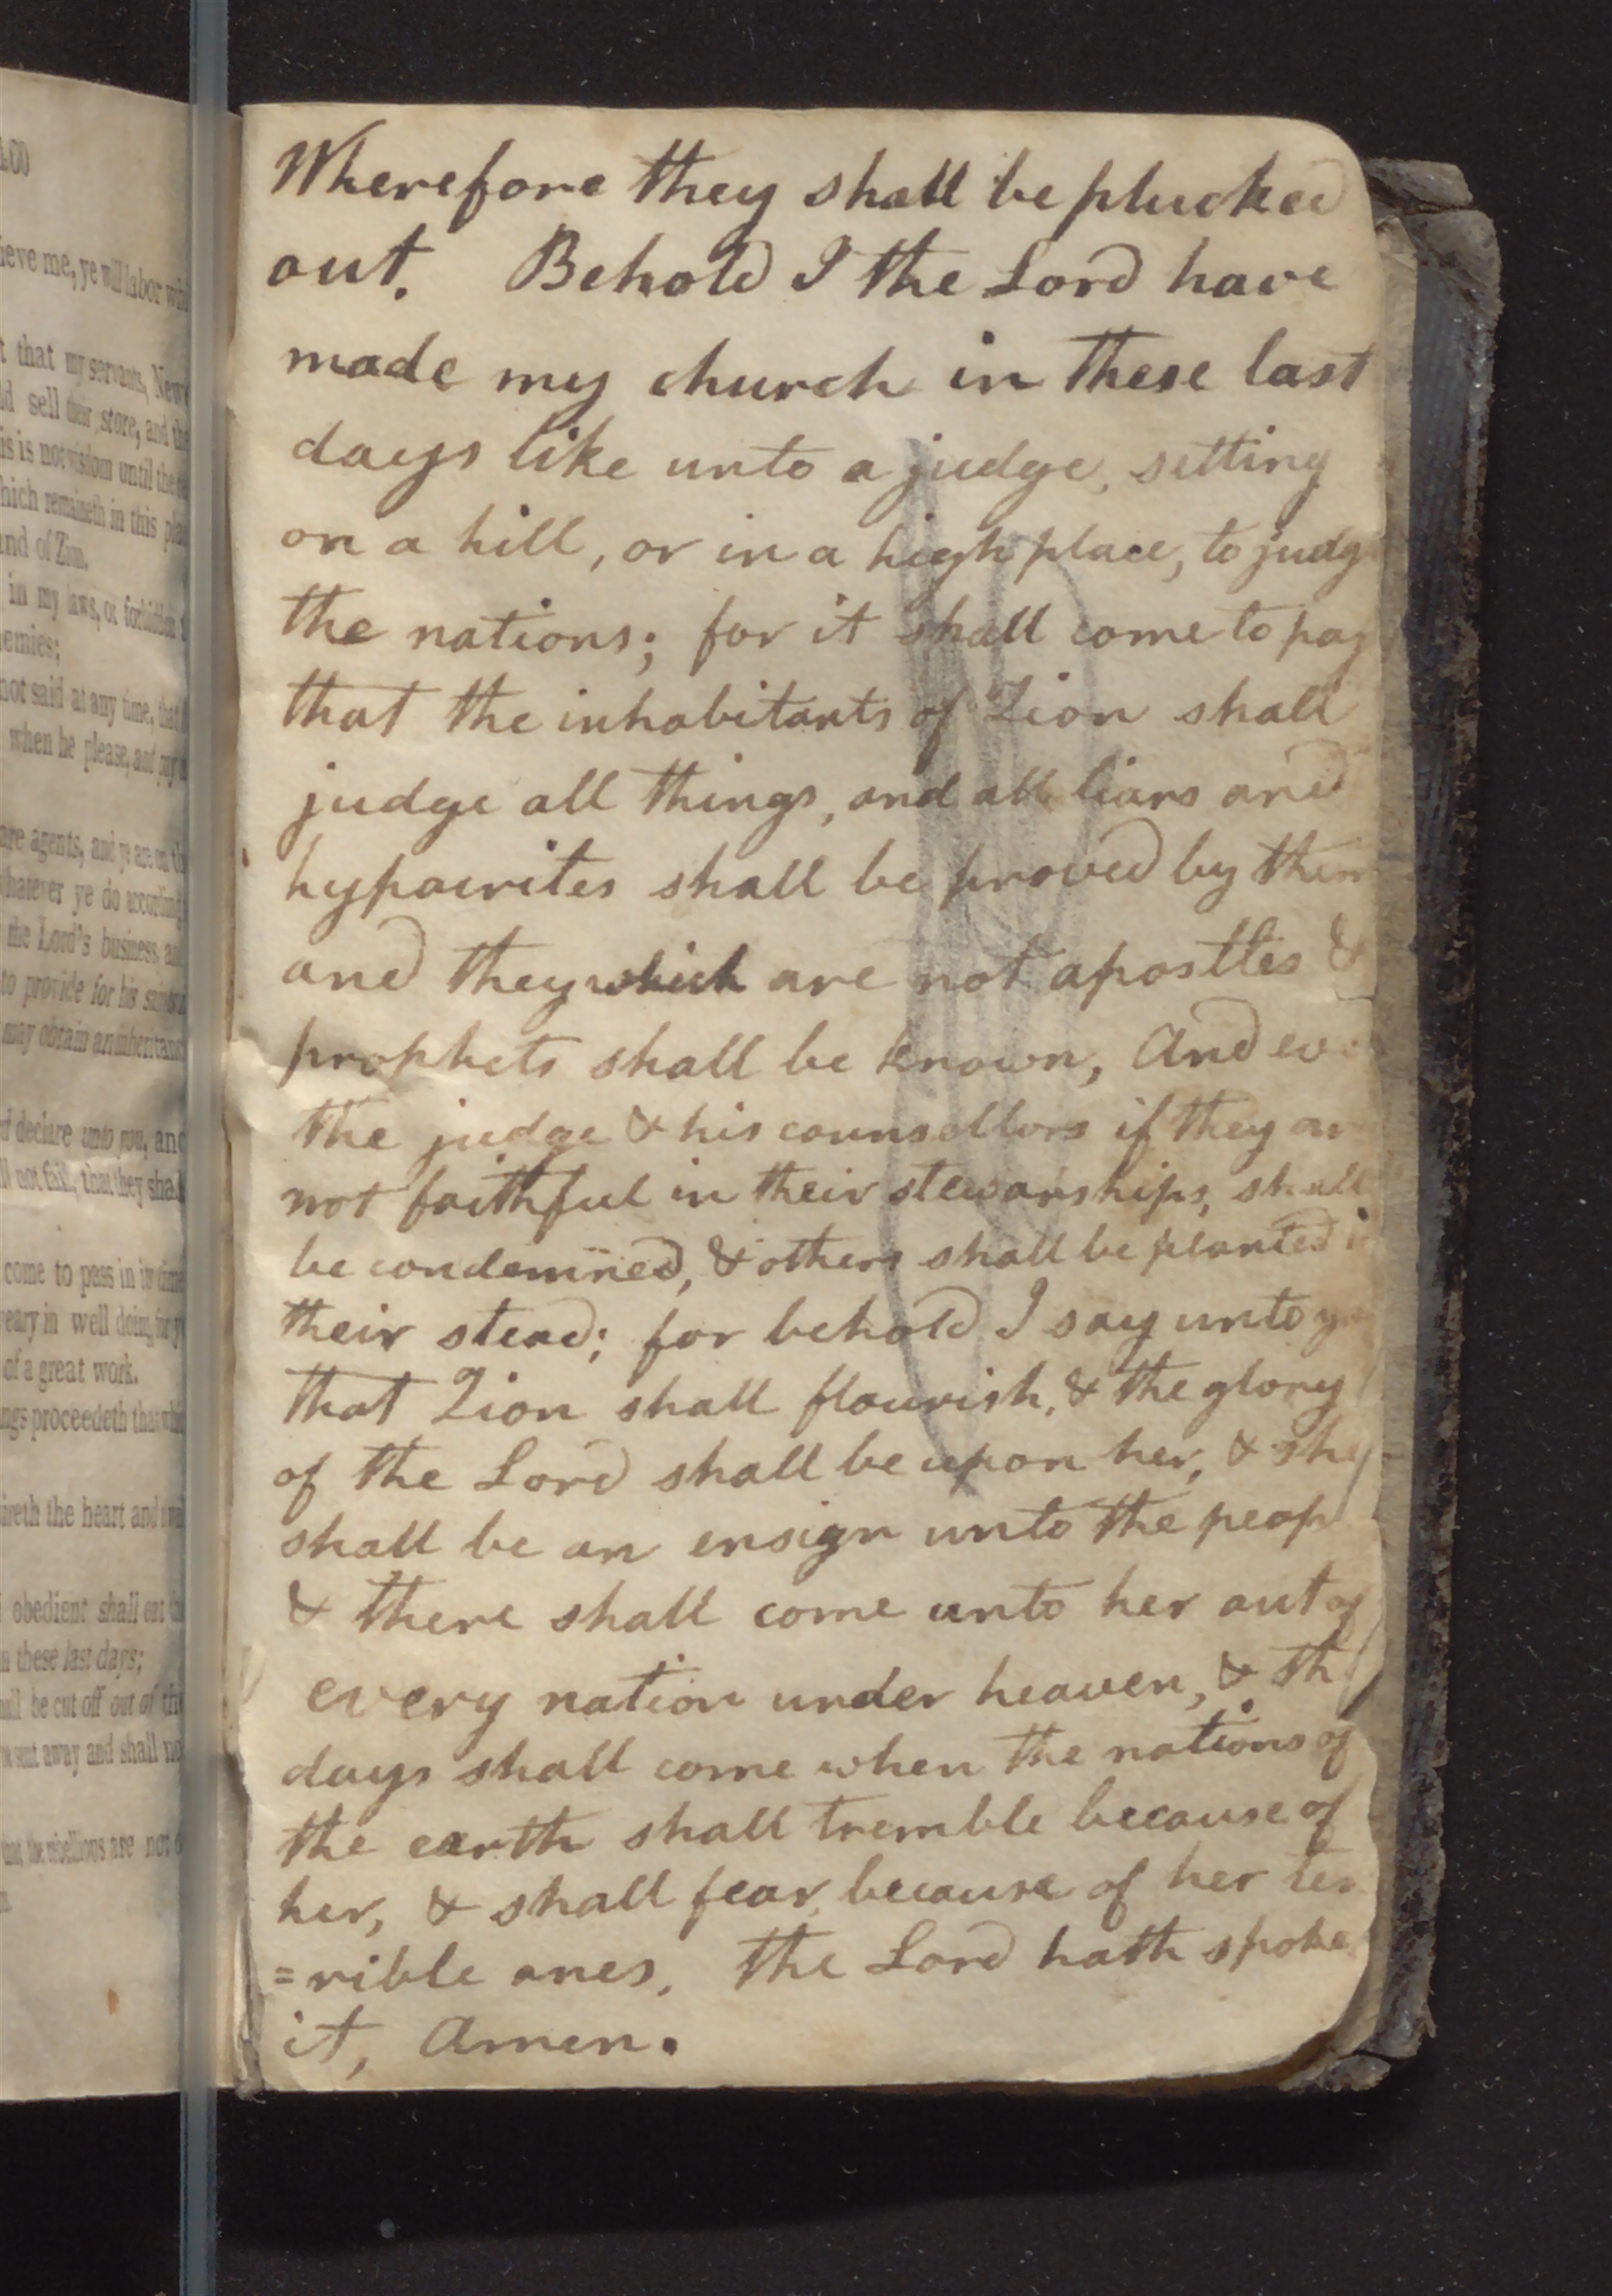 400
ieve me, ye will labor
t that my servants,
ld sell their store, and
is is not wisdom until the
hich remaineth in this
and of Zion.
in my laws, or forbidden
emies;
not said at any time,
when he please, and
are agents, and ye are on
whatever ye do
the Lord's business
to provide for his
may obtain an
declare unto you, and
not fail, that they
come to pass in
eary in well doing,
of a great work.
ngs proceedeth that
ireth the heart and
obedient shall eat
n these last days;
be cut off out of
sent away and shall
the rebellious are not
Wherefore they shall be plucked
out. Behold I the Lord have
made my church in these last
days like unto a judge, setting
on a hill, or in a high place, to judg
the nations; for it shall come to pas
that the inhabitants of Zion shall
judge all things, and all liars and
hypocrites shall be proved by them
and they which are not apostles &
prophets shall be known, And eve
the judge & his counsellors if they ar
not faithful in their stewarships, shall
be condemned, & others shall be planted i
their stead; for behold I say unto yo
that Zion shall flourish, & the glory
of the Lord shall be upon her, & she
shall be an ensign unto the peop
& there shall come unto her out of
every nation under heaven, & th
days shall come when the nations of
the earth shall tremble because of
her, & shall fear, because of her ter
=rible ones, the Lord hath spoke
it, Amen.